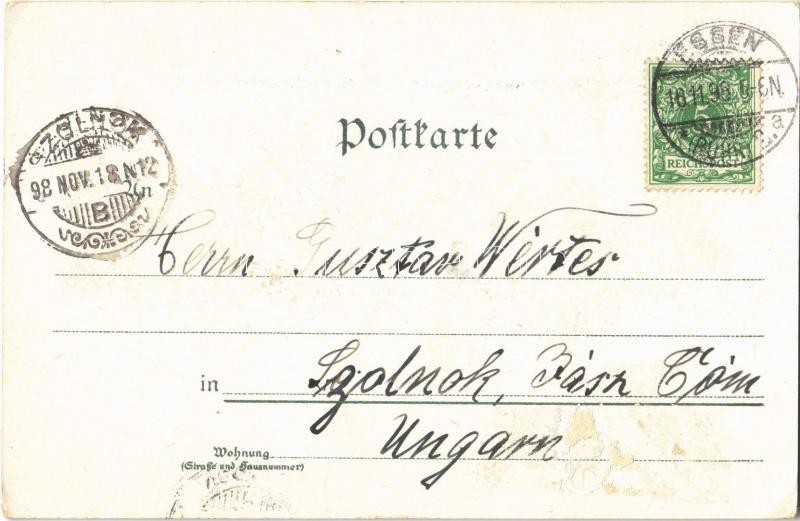 ESSEN
16.11.98. 6-8N.
(RUHR) a
5
REICHSPOST
SZOLNOK
98 NOV. 18. N12
B
Postkarte
An
Herrn Gusztav Wertes
in Szolnok, Jász Cóm
Ungarn
Wohnung
(Straße und Hausnummer)